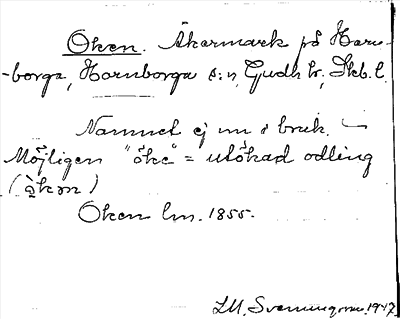 Öken. Åkermark på Horn-
-borga, Hornborga s:n, Gudh. hr, Skb. l.
Namnet ej nu i bruk. —
Möjligen "öke" = utökad odling
(ö̀kən)
Öken lm. 1855.
L.M. Svenungsson. 1947.